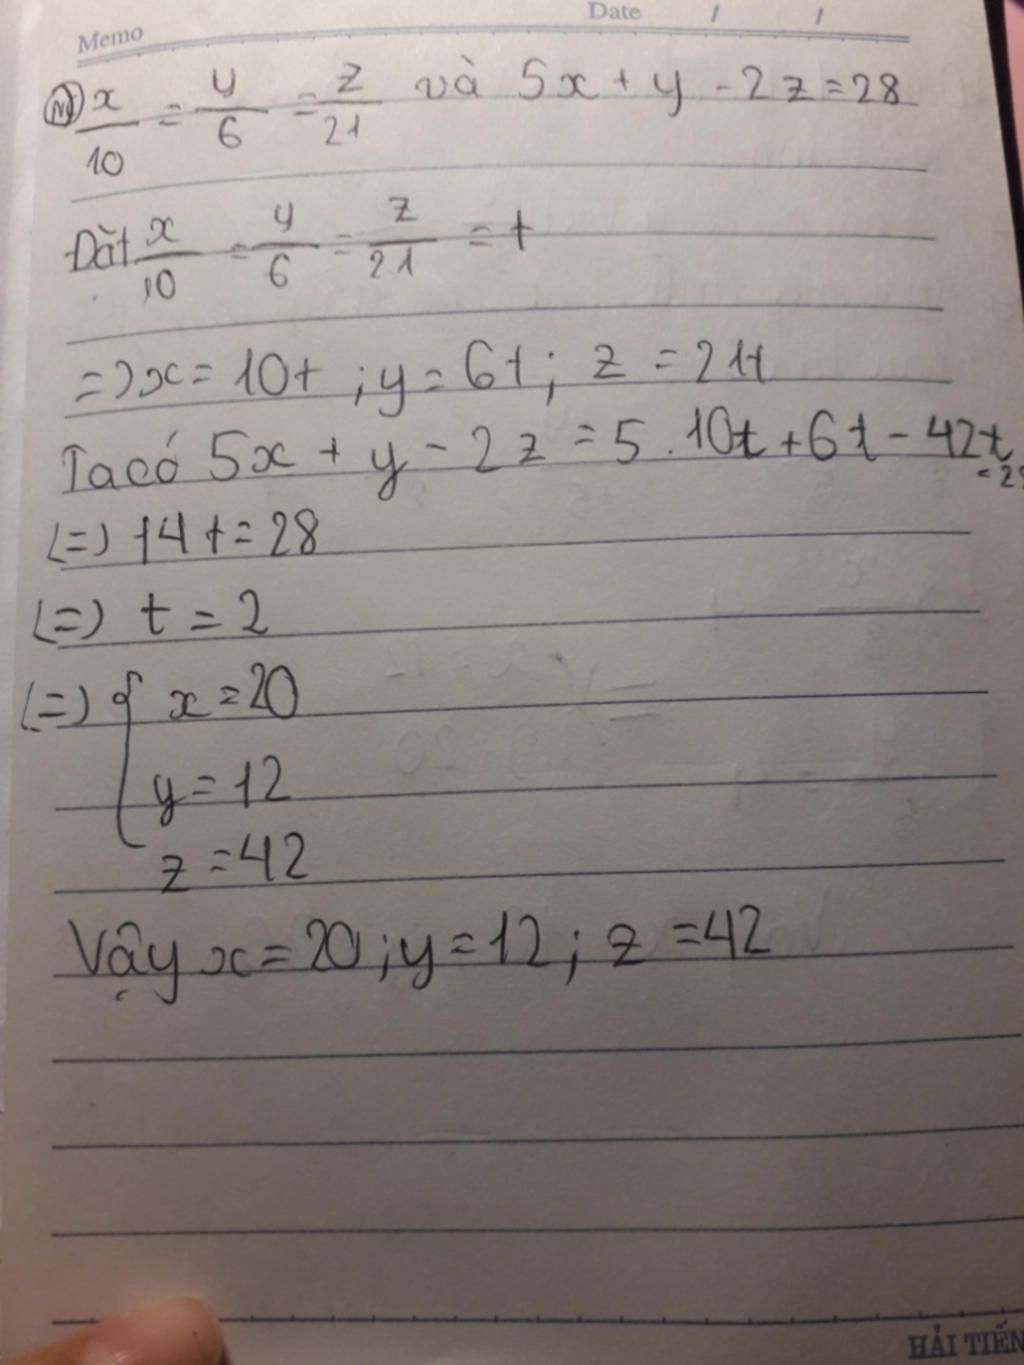 Memo Date / /
m) x/10 = y/6 = z/21 và 5x + y - 2z = 28
Đặt x/10 = y/6 = z/21 = t
=> x = 10t ; y = 6t ; z = 21t
Ta có 5x + y - 2z = 5 . 10t + 6t - 42t = 28
(=) 14t = 28
(=) t = 2
(=) { x = 20
y = 12
z = 42
Vậy x = 20 ; y = 12 ; z = 42
HẢI TIẾN